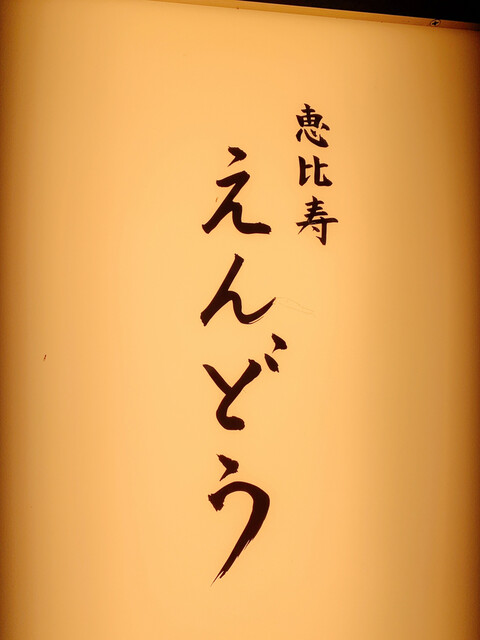 恵比寿
えんどう